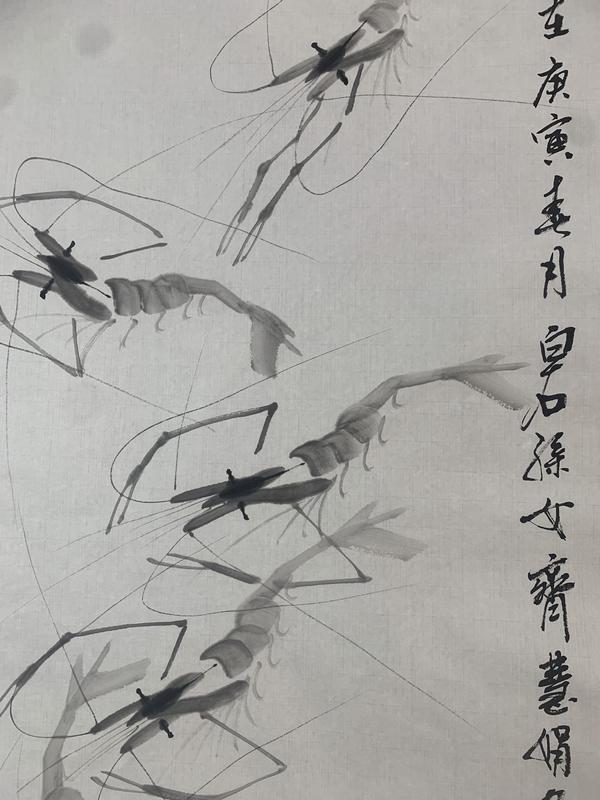 在庚寅春月白石孫女齊慧娟